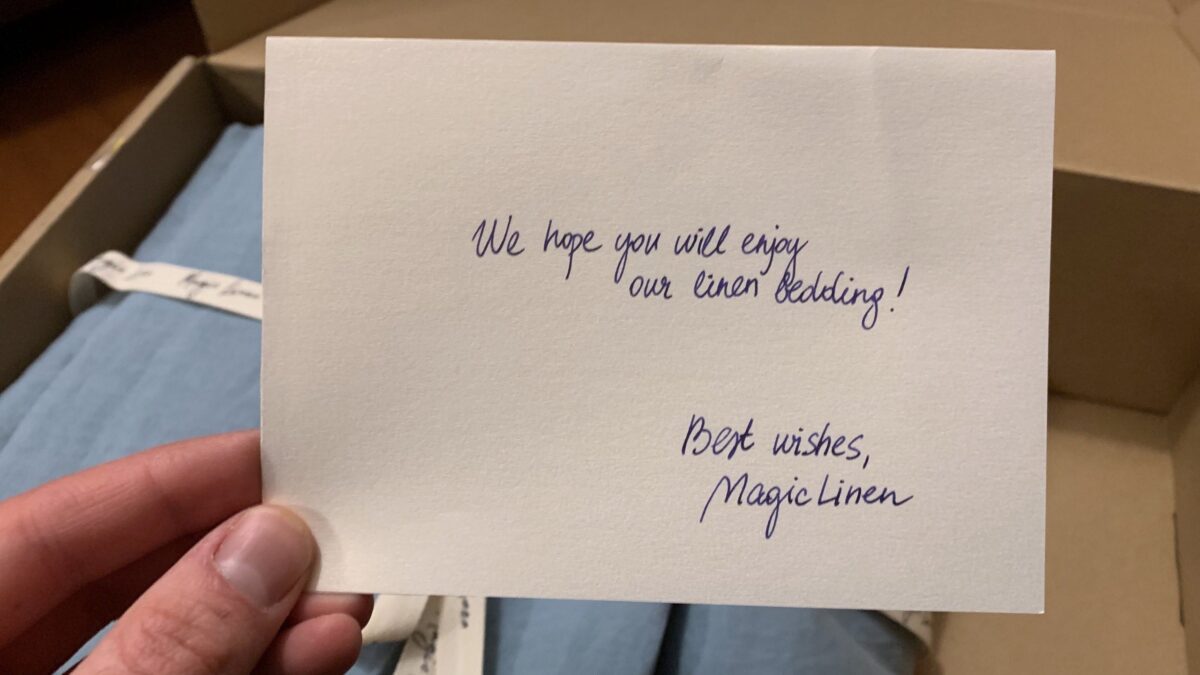 We hope you will enjoy
our linen bedding!
Best wishes,
MagicLinen
Magic Linen